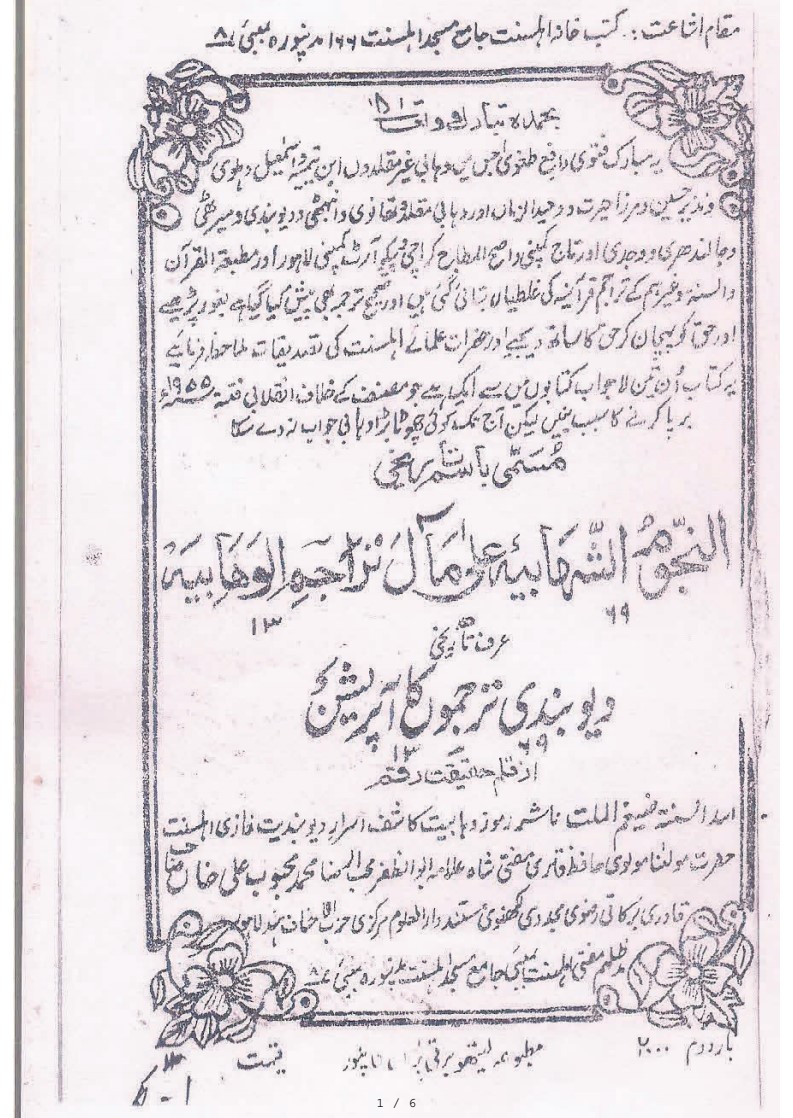 مقام اشاعت :۔ کتب خانہ اہلسنت جامع مسجد اہلسنت ۱۶۶ مدنپورہ بمبئی ۸
بحمدہ تبارک و تعالیٰ
یہ مبارک فتویٰ دافع طغویٰ جس میں وہابی غیر مقلدوں ابن تیمیہ و اسمٰعیل دہلوی
و نذیر حسین و مرزا حیرت و وحید الزماں اور وہابی مقلد و تھانوی و انبہٹی و دیوبندی و میرٹھی
و جالندھری و وجدی اور تاج کمپنی و اصح المطابع کراچی و پیکو آرٹ کمپنی لاہور اور مطبعۃ القرآن
والسنۃ وغیرہم کے تراجم قرآنیہ کی غلطیاں بتائی گئی ہیں اور صحیح ترجمہ بھی پیش کیا گیا ہے بغور پڑھیے
اور حق کو پہچان کر حق کا ساتھ دیجیے اور حضرات علمائے اہلسنت کی تصدیقات ملاحظہ فرمایئے
یہ کتاب اُن تین لاجواب کتابوں میں سے ایک ہے جو مصنف کے خلاف انقلابی فتنہ ۱۹۵۵ء
برپا کرنے کا سبب بنیں لیکن آج تک کوئی چھوٹا بڑا وہابی جواب نہ دے سکا
مُسَمّٰی باسم تاریخی
النجوم الشہابیہ علیٰ مآل تراجم الوہابیہ
۱۳ ۶۹
عرف تاریخی
دیوبندی ترجموں کا آپریشن
۱۳ ۶۹
از قلم حقیقت رقم
اسد السنۃ ضیغم الملت ناشر رموز وہابیت کاشف اسرار دیوبندیت غازی اہلسنت
حضرت مولٰنا مولوی حافظ قاری مفتی شاہ علامہ ابو الظفر محب الرضا محمد محبوب علی خاں صاحب
قادری برکاتی رضوی مجددی لکھنوی مستند دار العلوم مرکزی حزب الاحناف ہند لاہور
مدظلہم مفتی اہلسنت بمبئی جامع مسجد اہلسنت مدنپورہ بمبئی ۸
بار دوم ۲۰۰۰
مطبوعہ لیتھو برقی پریس کانپور
قیمت
1 / 6